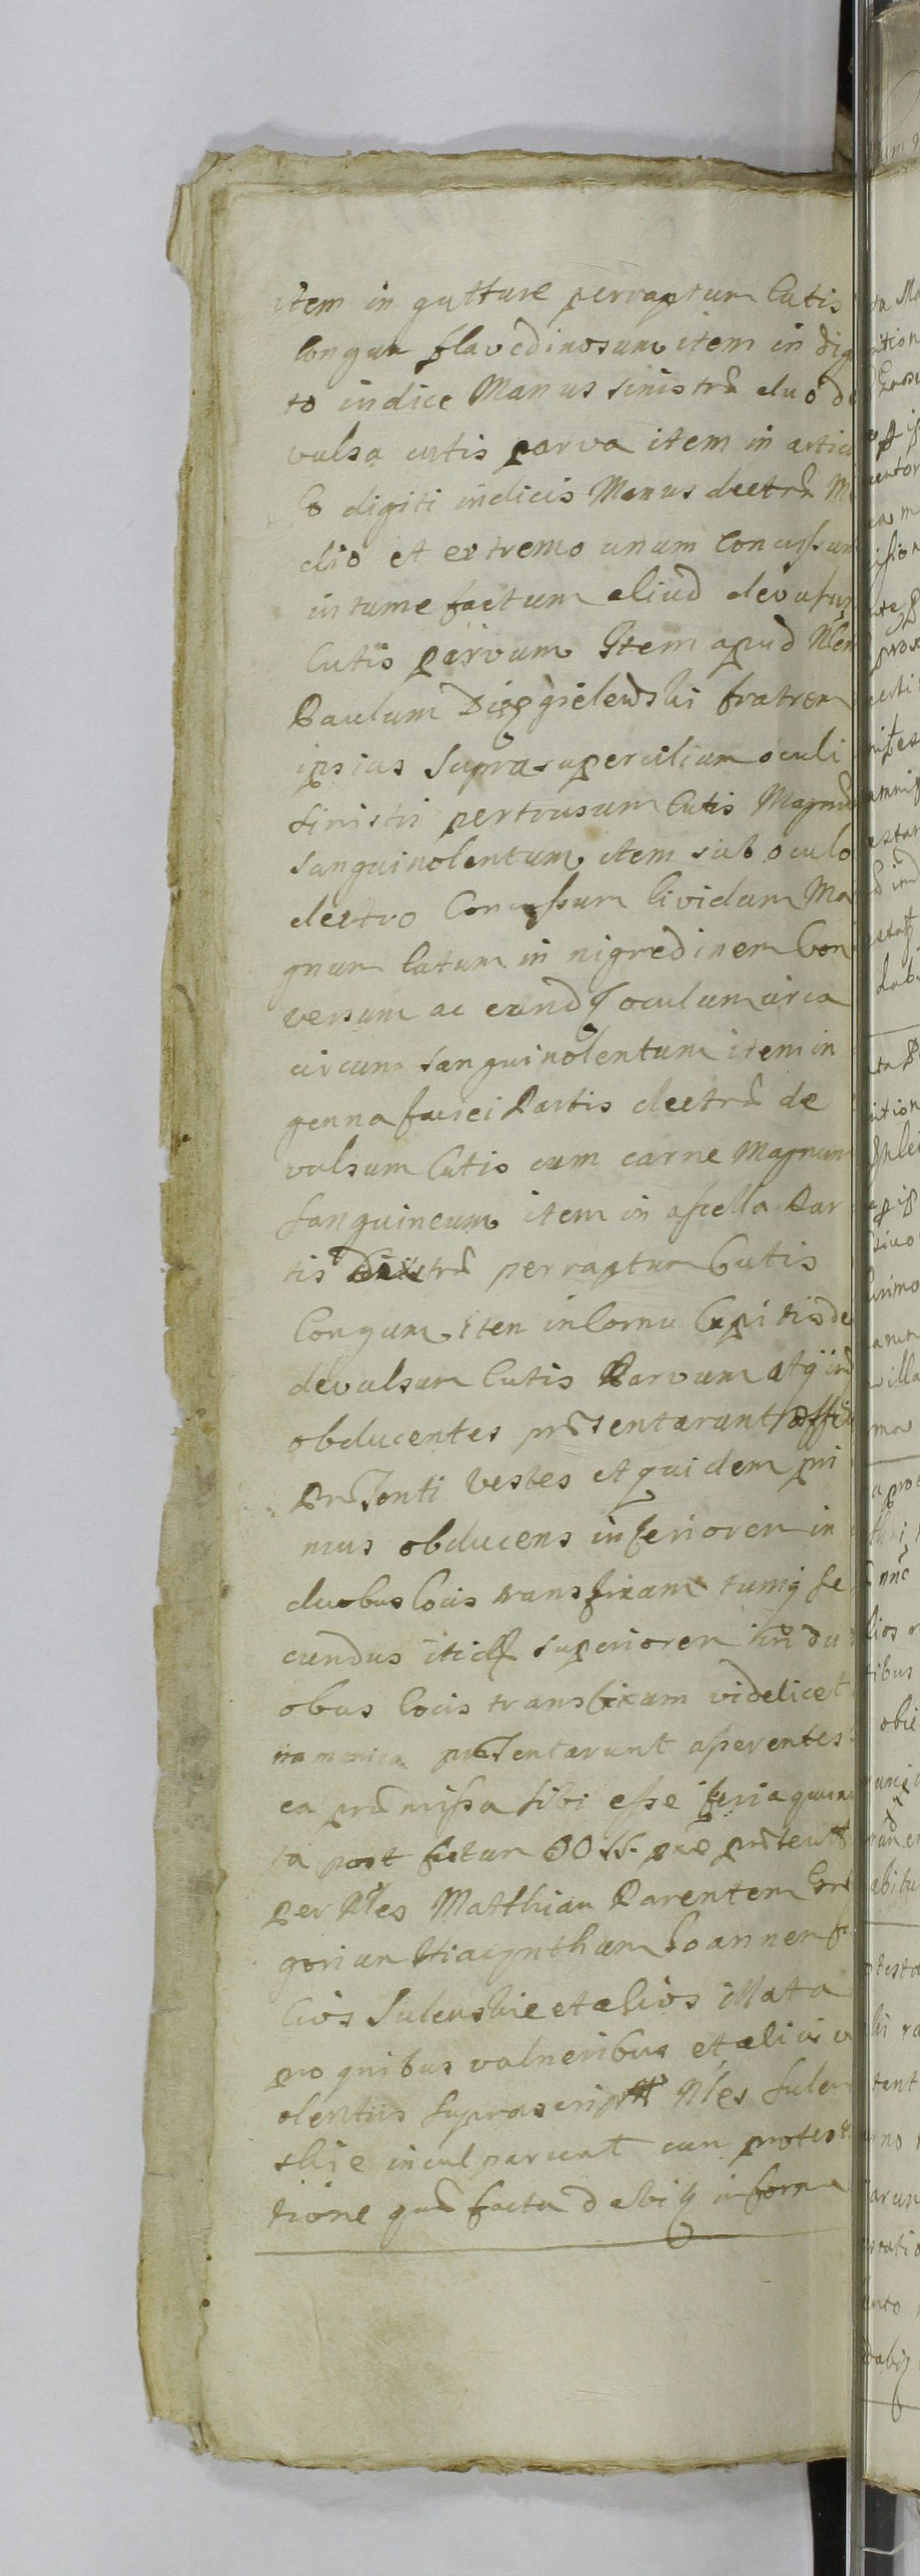 item in gutture perraptum Cutis
longum flavedinosum item in dig
to indice Manus sinistræ duo de
vulsa cutis parva item in articu
lo digiti indicis Manus dextræ Me
dio et extremo unum Concussum
intumefactum aliud devulsum
Cutis parvum Item apud Nlem
Paulum fratrem
ipsius Supra supercilium oculi
sinistri pertusum Cutis Magnum
sanguinolentum item sub oculo
dextro Concussum lividum Ma
gnum latum in nigredinem Con
versum ac eundq oculum circa
circum sanguinolentum item in
genna faciei Partis dextræ de
vulsum Cutis cum carne Magnum
sanguineum item in ascella Par
tis perraptum Cutis
longum item in Cornu Capitis de
devulsum Cutis Parvum atq ind
obducentes præsentarunt Offici
Præsenti vestes et quidem pri
mus obducens inferiorem in
duobus locis transfixam tumq se
cundus itidq superiorem in du
obus locis transfixam videlicet
in manica præsentarunt asserentes
ea præmissa sibi esse feria quin
ta post festum OO SS. proxe præterit
per Nles Matthiam Parentem Gre
gorium Hiacynthum Joannem fi
lios Sulewskie et alios illata
pro quibus vulneribus et aliis vi
olentiis suprascript Nles Sulew
skie inculparunt cum protesta
tione quæ facta debitq in forma